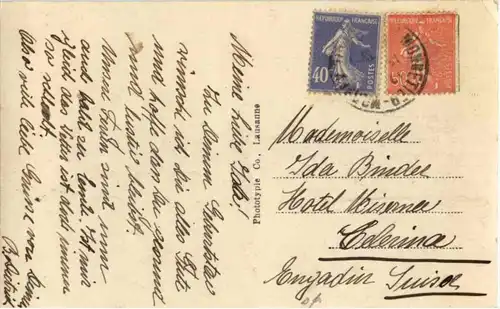 Meine liebe Ida!
Zu Deinem Geburtstag
wünsch ich dir alles Gute
und hoffe dass Du gesund
und lustig bleibst.
Unsere Ferien sind nun
auch bald zu Ende. Ist mir
gleich das Wetter ist doch immer
so schlecht.
Also viele liebe Grüsse von Deiner
Phototypie Co., Lausanne
REPUBLIQUE FRANÇAISE
40c
POSTES
REPUBLIQUE FRANÇAISE
50c
Mademoiselle
Ida Binder
Hotel
Celerina
Engadin Suisse